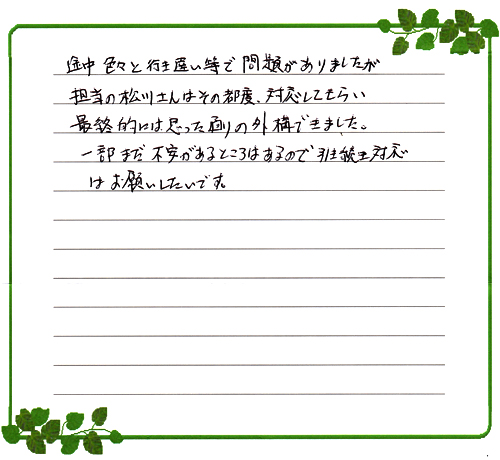 途中 色々と行き違い等で 問題がありましたが
担当の松川さんはその都度、対応してもらい
最終的には思った通りの外構できました。
一部まだ 不安があるところはあるので 引き続き対応
はお願いしたいです。